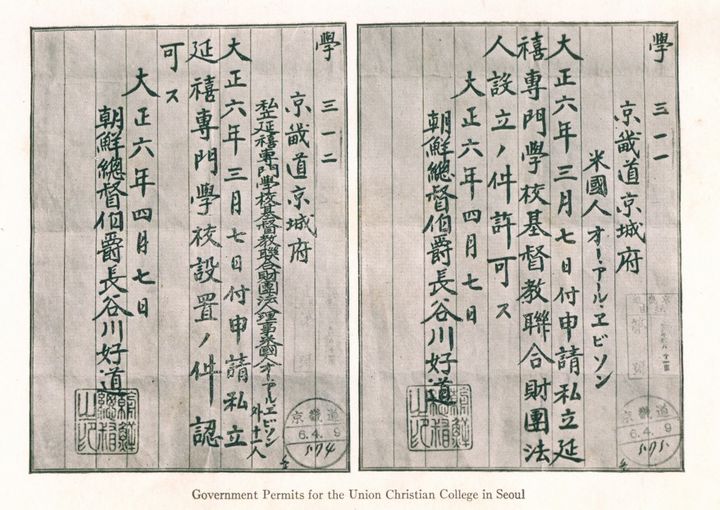 學 三一一
京畿道京城府
米國人 オー、アール、ヱビソン
大正六年三月七日付申請私立延
禧專門學校基督教聯合財團法
人設立ノ件許可ス
大正六年四月七日
朝鮮總督伯爵長谷川好道
京畿道
6.4.9
學 三一二
京畿道京城府
私立延禧專門學校基督教聯合財團法人理事米國人オーアールヱビソン
外十一人
大正六年三月七日付申請私立
延禧專門學校設置ノ件認
可ス
大正六年四月七日
朝鮮總督伯爵長谷川好道
京畿道
6.4.9
574
Government Permits for the Union Christian College in Seoul